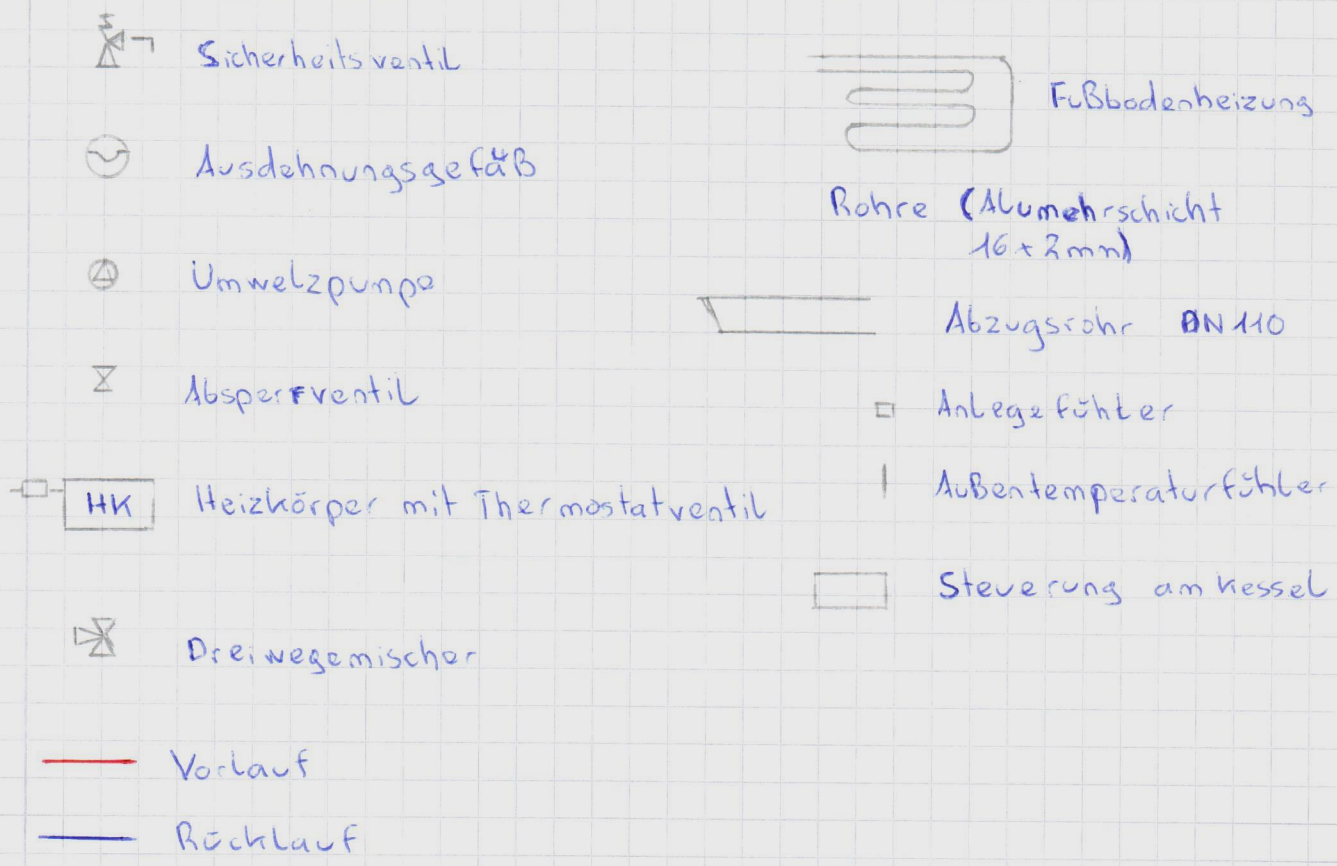 Sicherheitsventil
Ausdehnungsgefäß
Umwelzpumpe
Absperrventil
HK Heizkörper mit Thermostatventil
Dreiwegemischer
Vorlauf
Rücklauf
Fußbodenheizung
Rohre (Alumehrschicht
16 x 2mm)
Abzugsrohr DN 110
Anlegefühler
Außentemperaturfühler
Steuerung am Kessel